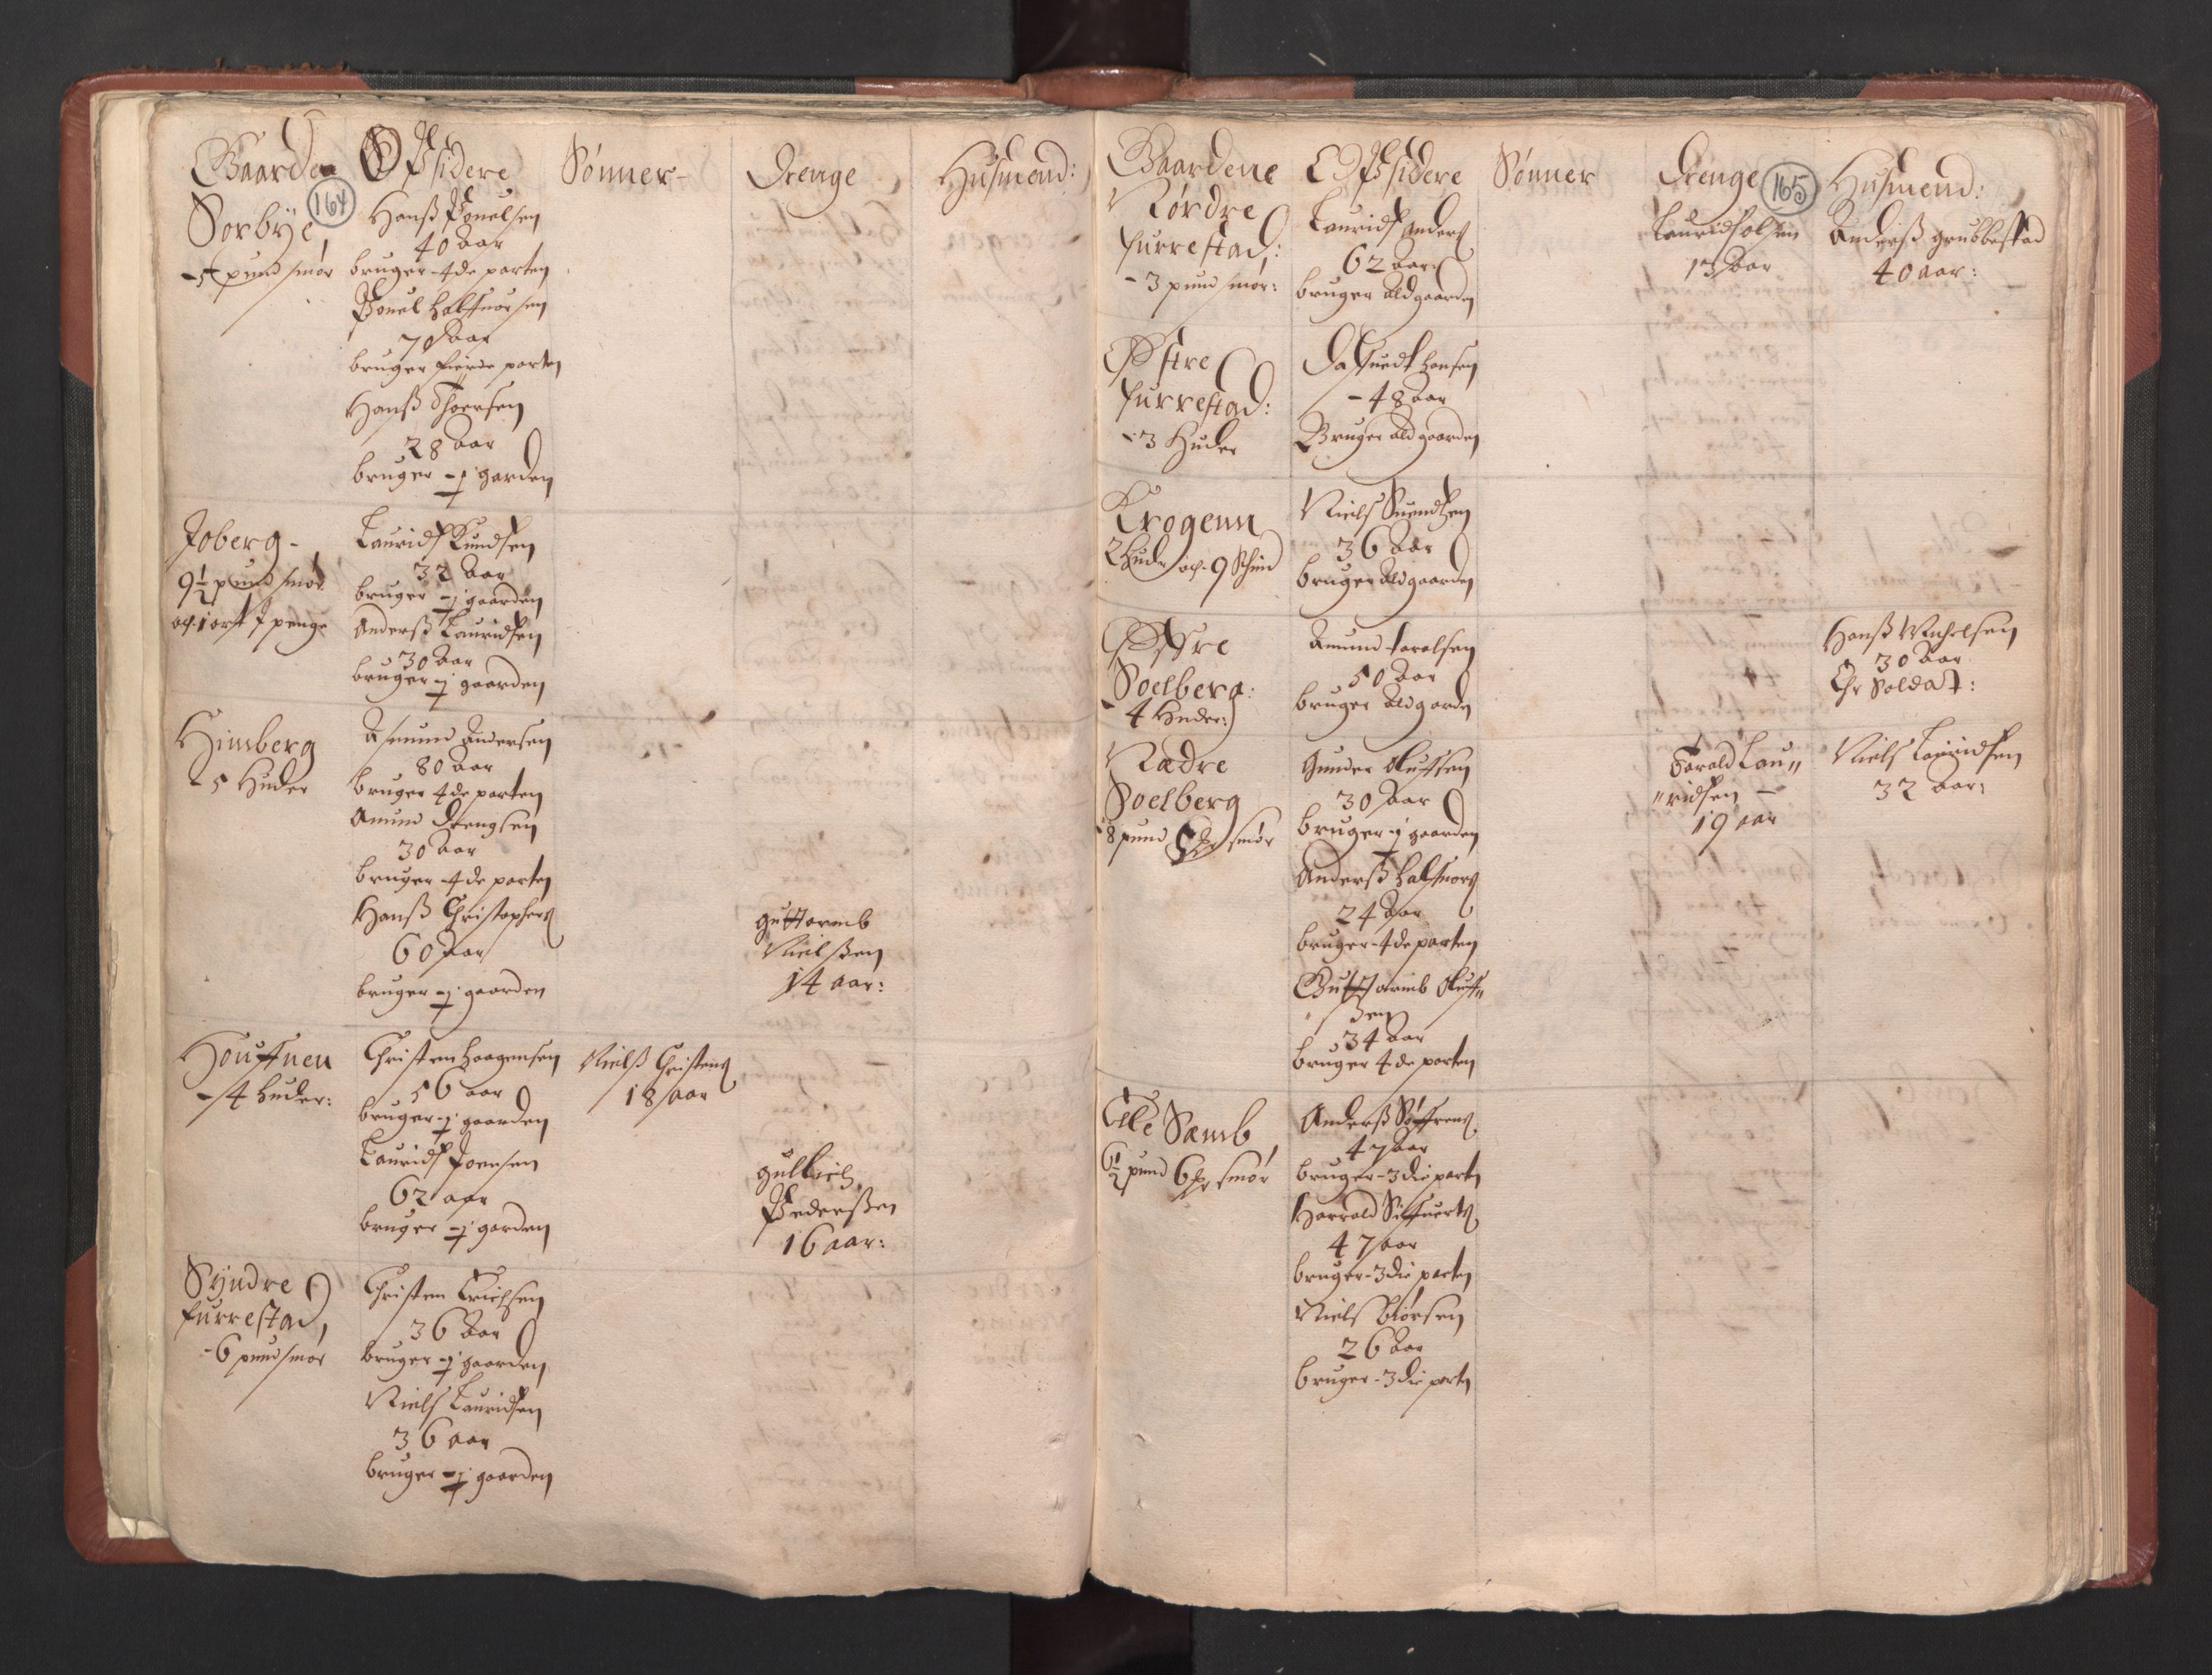 Gaarden
Opsidere
Sønner
Drenge
Husmend:
164
Sorbye
5 pund smør
Hanß Pouelsen
40 Aar
bruger 4de parten
Pouel Halfuorsen
70 Aar
bruger fierde parten
Hanß Thoersen
28 Aar
bruger ½ garden
Joberg
9½ pund smør
och 1 ort 7 penge
Lauridß Knudsen
32 Aar
bruger ½ gaarden
Anderß Lauridsen
30 Aar
bruger ½ gaarden
Himberg
5 Huder
Asmund Andersen
80 Aar
bruger 4de parten
Amund
30 Aar
bruger 4de parten
Hanß Christophers
60 Aar
bruger ½ gaarden
Guttormb
Nielßen
14 aar:
Houffnen
4 huder:
Christen Haagensen
56 aar
bruger ½ gaarden
Lauridß Joensen
62 aar
bruger ½ garden
Nielß Christens
18 aar
Gulbich
Pederßen
16 aar:
Syndre
furrestad,
6 pund smør
Christen Erichsen
36 Aar
bruger ½ gaarden
Niels Lauridsen
36 aar
bruger ½ gaarden
Gaardene
Opsidere
Sønner
Drenge
Husmend:
165
Nørdre
furrestad:
3 pund smør:
Lauridß Anders
62 aar
bruger ald gaarden
Lauridß olsen
13 Aar
Anderß grubbestad
40 aar:
Østre
furrestad:
3 Huder
hansen
48 Aar
Bruger ald gaarden
Krogenn
2 Huder och 9 Schind
Niels Suendsen
36 Aar
bruger ald gaarden
Øffre
Soelberg:
4 Huder:
Amund taralsen
50 Aar
bruger ald garden
Hanß Michelsen
30 Aar
Er Soldat:
Nædre
Soelberg
8 pund smør
Gunder Olufsen
30 Aar
bruger ½ gaarden
Anderß Halfuors
24 Aar
bruger 4de parten
Guttormb Oluf„
„sen
34 Aar
bruger 4de parten
Tarald Lau„
„ridsen
19 aar
Niels Lauridsen
32 Aar:
Lille Sæmb
6½ pund 6 smør
Anderß Søffrens
47 Aar
bruger 3die parten
Harrald Siffuerts
47 aar
bruger 3die parten
Niels Biørsen
26 Aar
bruger 3die parten